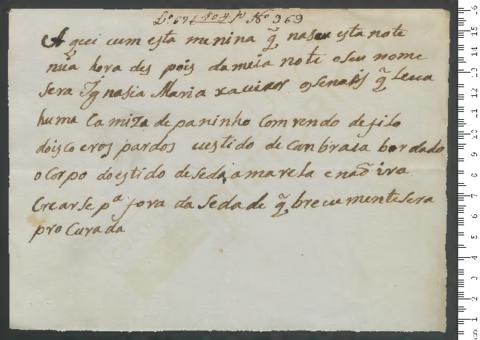 Nº 969
A qui cum esta menina q̃ naseu esta note
nũa hora des pois da meia note o seu nome
sera Ignasia Maria xavier os enais q̃ Leva
huma Camiza de paninho Com rendo de filo
dois coeros pardos vestido de Canbraia bordado
o Corpo do estido de seda amarela e não ira
Crearse pª fora da sedade q̃ brevemente sera
pro Curada